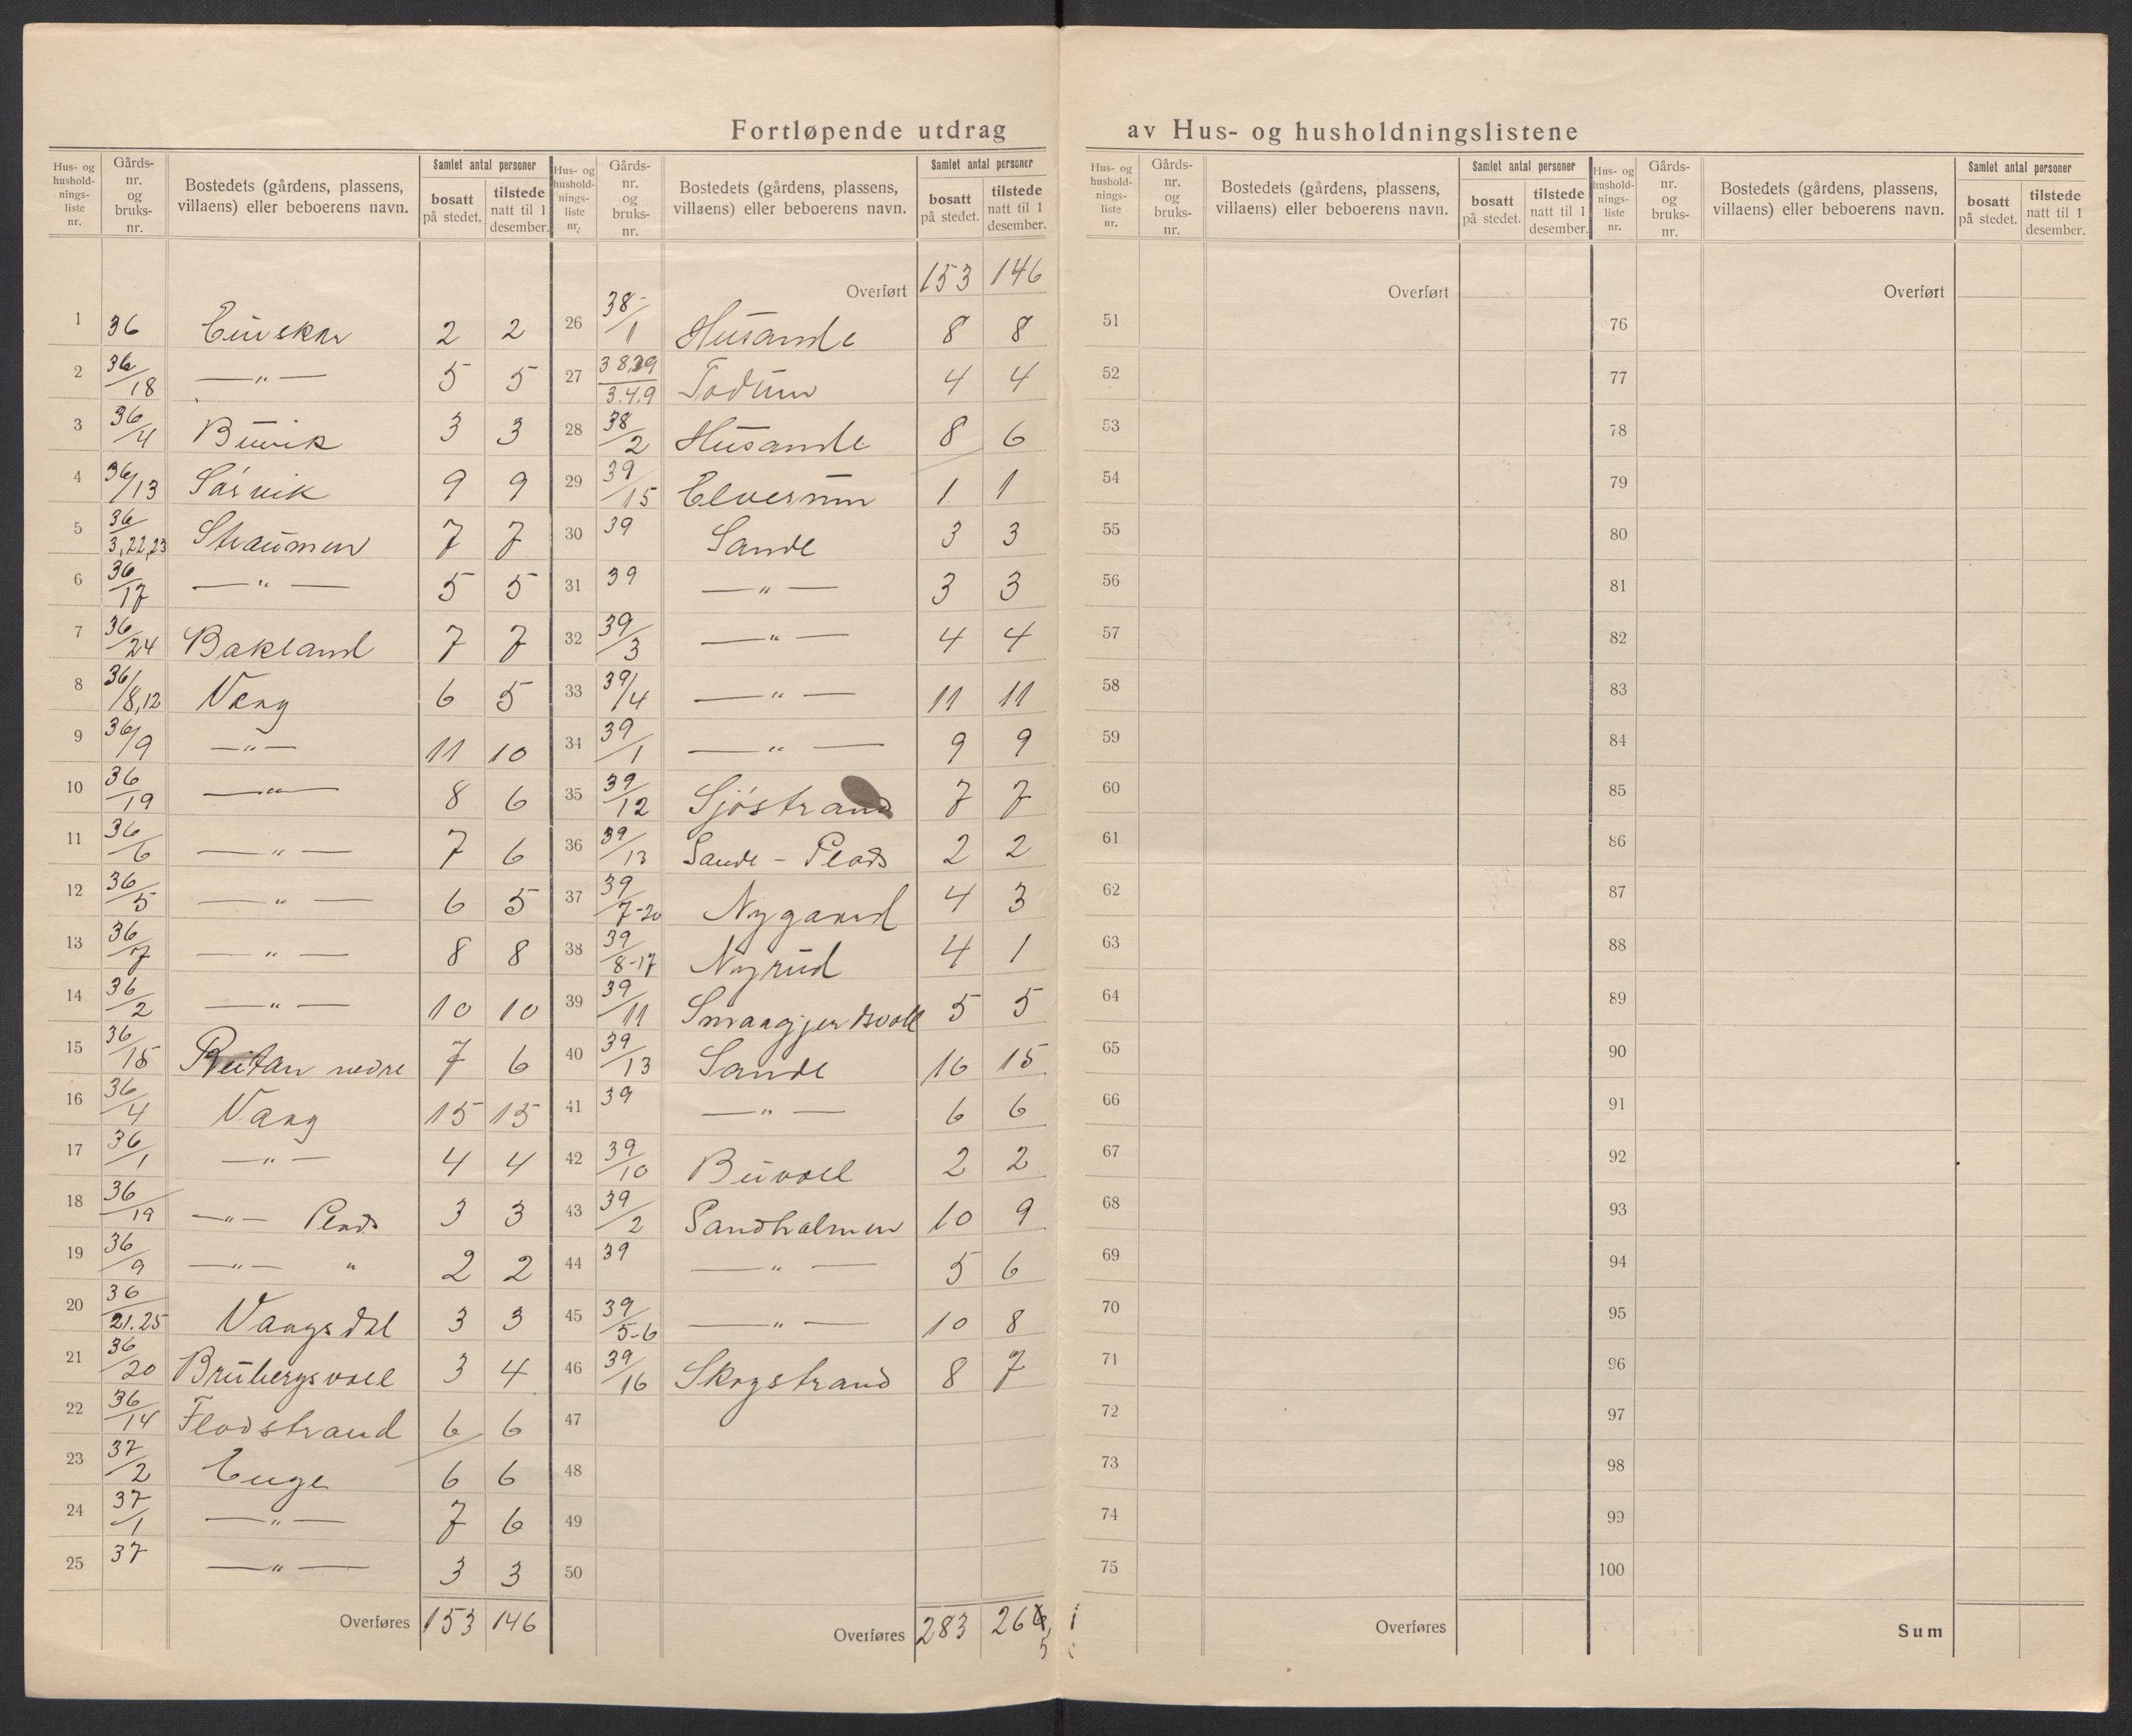 Fortløpende utdrag av Hus- og husholdningslistene
Hus- og hushold-nings-liste nr. | Gårds-nr. og bruks-nr. | Bostedets (gårdens, plassens, villaens) eller beboerens navn. | Samlet antal personer | bosatt på stedet. | tilstede natt til 1 desember.
1 36 2 2
2 36/18 —„— 5 5
3 36/4 Buvik 3 3
4 36/13 Sørvik 9 9
5 36/3,22,23 Straumen 7 7
6 36/17 —„— 5 5
7 36/24 Bakland 7 7
8 36/8,12 Vang 6 5
9 36/9 —„— 11 10
10 36/19 —„— 8 6
11 36/6 —„— 7 6
12 36/5 —„— 6 5
13 36/7 —„— 8 8
14 36/2 —„— 10 10
15 36/15 Reitan nedre 7 6
16 36/4 Vang 15 15
17 36/1 —„— 4 4
18 36/19 —„— Plads 3 3
19 36/9 —„— „ 2 2
20 36/21.25 Vangsdal 3 3
21 36/20 Brubergsvoll 3 4
22 36/14 Flodstrand 6 6
23 37/2 Enge 6 6
24 37/1 —„— 7 6
25 37 —„— 3 3
Overføres 153 146
Hus- og hushold-nings-liste nr. | Gårds-nr. og bruks-nr. | Bostedets (gårdens, plassens, villaens) eller beboerens navn. | Samlet antal personer | bosatt på stedet. | tilstede natt til 1 desember.
Overført 153 146
26 38-/1 Husande 8 8
27 38,39/3.4.9 4 4
28 38/2 Husande 8 6
29 39/15 Elverum 1 1
30 39 Sande 3 3
31 39 —„— 3 3
32 39/3 —„— 4 4
33 39/4 —„— 11 11
34 39/1 —„— 9 9
35 39/12 Sjöstrand 7 7
36 39/13 Sande - Plads 2 2
37 39/7-20 Nygaard 4 3
38 39/8-17 Nyrud 4 1
39 39/11 5 5
40 39/13 Sande 16 15
41 39 —„— 6 6
42 39/10 Buvoll 2 2
43 39/2 Sandholmen 10 9
44 39 —„— 5 6
45 39/5-6 —„— 10 8
46 39/16 Skogstrand 8 7
47
48
49
50
Overføres 283 264 5
Hus- og hushold-nings-liste nr. | Gårds-nr. og bruks-nr. | Bostedets (gårdens, plassens, villaens) eller beboerens navn. | Samlet antal personer | bosatt på stedet. | tilstede natt til 1 desember.
Overført
51
52
53
54
55
56
57
58
59
60
61
62
63
64
65
66
67
68
69
70
71
72
73
74
75
Overføres
Hus- og hushold-nings-liste nr. | Gårds-nr. og bruks-nr. | Bostedets (gårdens, plassens, villaens) eller beboerens navn. | Samlet antal personer | bosatt på stedet. | tilstede natt til 1 desember.
Overført
76
77
78
79
80
81
82
83
84
85
86
87
88
89
90
91
92
93
94
95
96
97
98
99
100
Sum